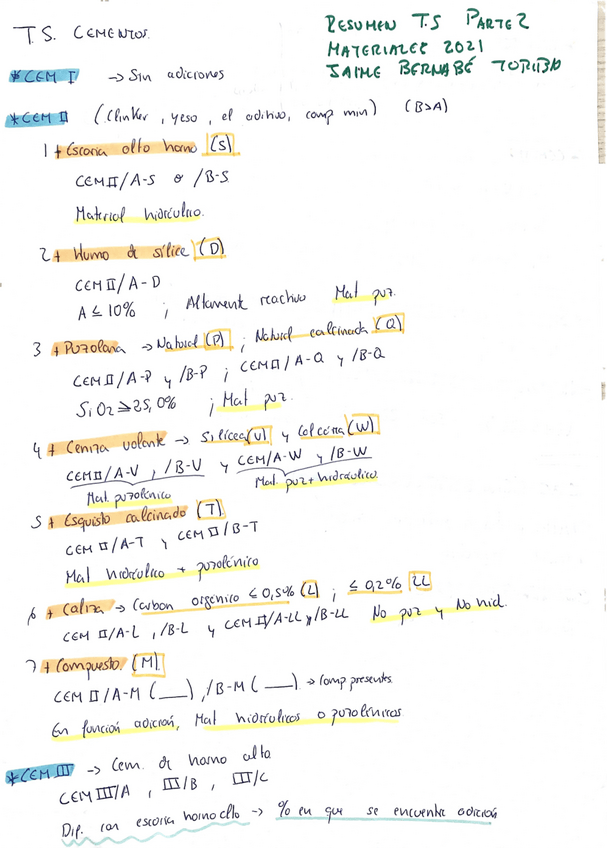 T.S. CEMENTOS.
RESUMEN T.S PARTE 2
MATERIALES 2021
JAIME BERNABÉ TORIBIO
*CEM I → Sin adiciones
*CEM II (Clinker, yeso, el aditivo, comp min) (B>A)
1 + Escoria alto horno (S)
CEM II/A-S o /B-S
Material hidráulico.
2 + Humo de sílice (D)
CEM II/A-D
A ≤ 10% ; Altamente reactivo Mat puz.
3 + Puzolana → Natural (P) ; Natural calcinada (Q)
CEM II/A-P y /B-P ; CEM II/A-Q y /B-Q
SiO2 ≥ 25,0% ; Mat puz.
4 + Ceniza volante → Silícea (V) y Calcárea (W)
CEM II/A-V , /B-V y CEM/A-W y /B-W
Mat. puzolánico Mat. puz + hidráulico.
5 + Esquisto calcinado (T)
CEM II/A-T y CEM II/B-T
Mat hidráulico + puzolánico
6 + Caliza → Carbon orgánico ≤ 0,5% (L) ; ≤ 0,2% LL
CEM II/A-L , /B-L y CEM II/A-LL y /B-LL No puz y No hid.
7 + Compuesto. (M)
CEM II/A-M (___) , /B-M (___) → Comp presentes.
En función adición, Mat hidráulicos o puzolánicos
*CEM III → Cem. de horno alto
CEM III/A , III/B , III/C
Dif. con escoria horno alto → % en que se encuentra adición